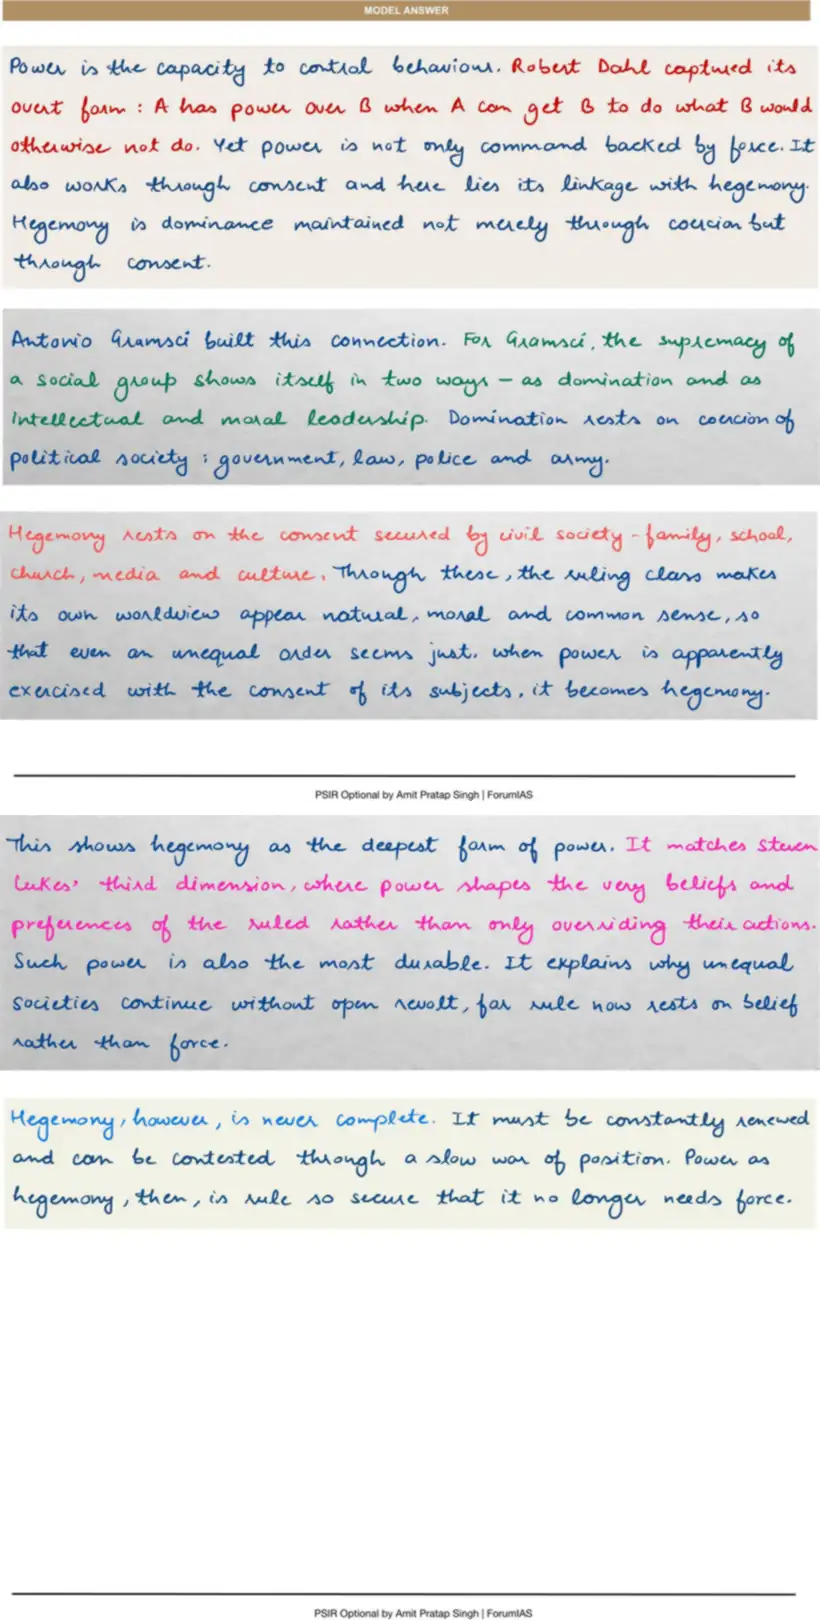 MODEL ANSWER
Power is the capacity to control behaviour. Robert Dahl captured its
overt form : A has power over B when A can get B to do what B would
otherwise not do. Yet power is not only command backed by force. It
also works through consent and here lies its linkage with hegemony.
Hegemony is dominance maintained not merely through coercion but
through consent.
Antonio Gramsci built this connection. For Gramsci, the supremacy of
a social group shows itself in two ways – as domination and as
intellectual and moral leadership. Domination rests on coercion of
political society : government, law, police and army.
Hegemony rests on the consent secured by civil society – family, school,
church, media and culture. Through these, the ruling class makes
its own worldview appear natural, moral and common sense, so
that even an unequal order seems just. when power is apparently
exercised with the consent of its subjects, it becomes hegemony.
PSIR Optional by Amit Pratap Singh | ForumIAS
This shows hegemony as the deepest form of power. It matches Steven
Lukes' third dimension, where power shapes the very beliefs and
preferences of the ruled rather than only overriding their actions.
Such power is also the most durable. It explains why unequal
societies continue without open revolt, for rule now rests on belief
rather than force.
Hegemony, however, is never complete. It must be constantly renewed
and can be contested through a slow war of position. Power as
hegemony, then, is rule so secure that it no longer needs force.
PSIR Optional by Amit Pratap Singh | ForumIAS